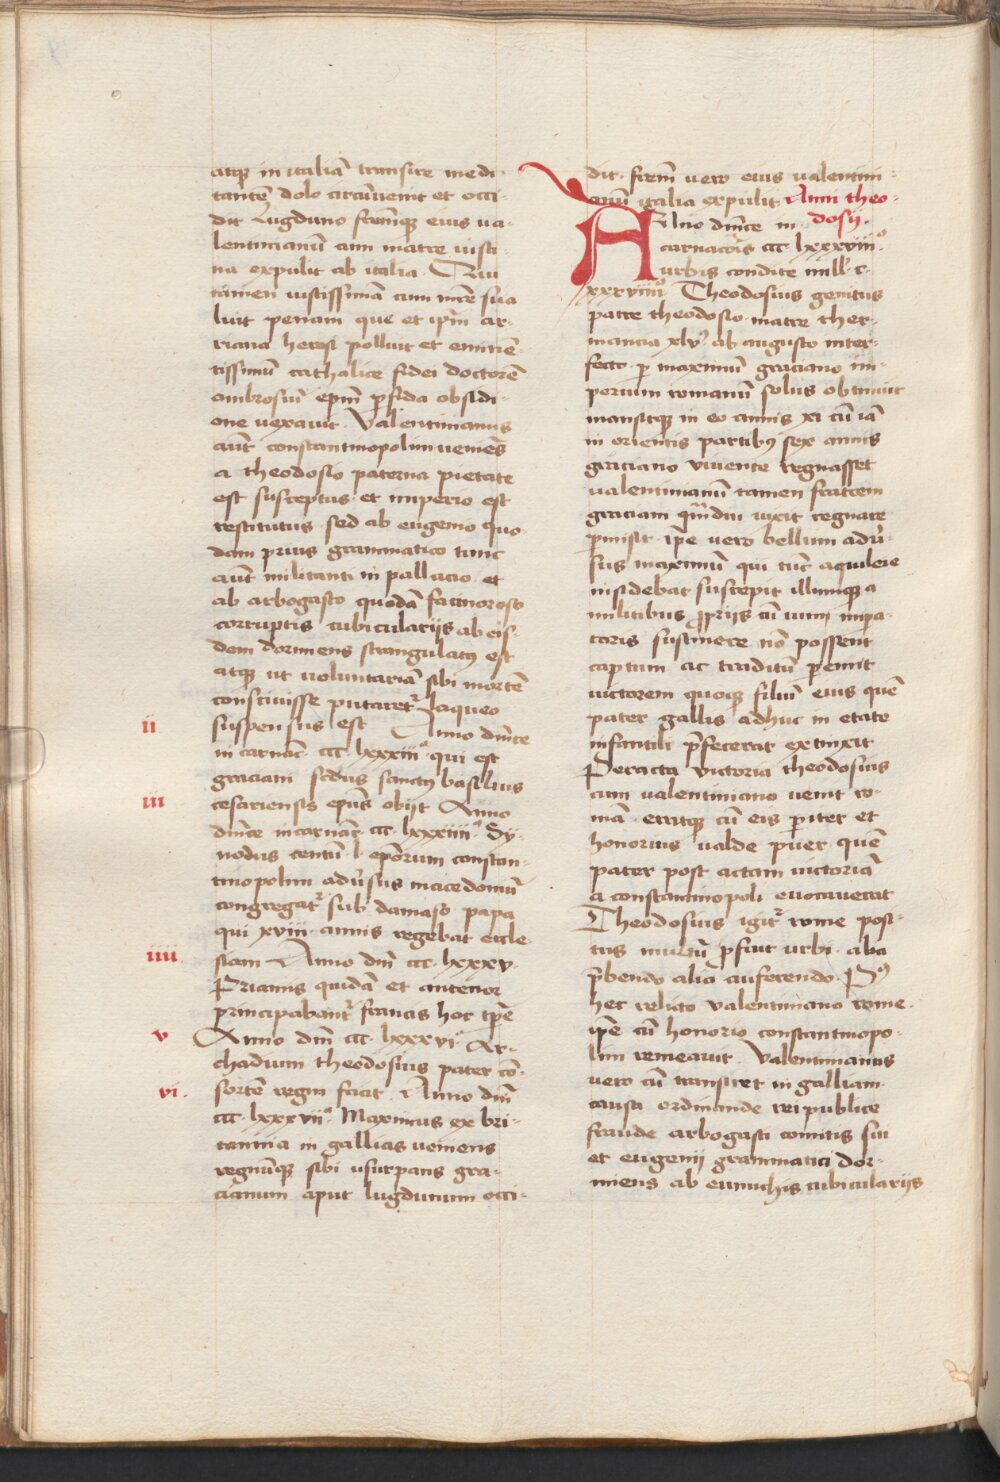 atqꝫ in italiā transire medi-
tantē dolo circūvenit et occi-
dit Lugduno frēmqꝫ eius va-
lentinianū cum matre iusti-
na expulit ab italia. Qui
tamen iustissimā cum mr̄e sua
luit penam que et ip̄m ar-
riana heresi polluit et eminē-
tissimū catholice fidei doctorē
ambrosiū ep̄m ꝑfida obsidi-
one vexavit. Valentinianus
aūt constantinopolim veniēs
a theodosio paterna pietate
est susceptus et imperio est
restitutus sed ab eugenio quo
dam prius grammatico tunc
aūt militanti in pallacio et
ab arbogasto quodā facinoroso
corruptis cubicularijs ab eis-
dem dormiens strangulatꝰ est
atqꝫ ut voluntariā sibi mortē
conscivisse putaret᷑ Laqueo
ii suspensus est Anno dn̄ice
incarnac̄ ccc lxxxiii° qui est
graciani sc̄dus sanctus basilius
iii cesariensis ep̄us obijt Anno
dn̄ice incarnac̄ ccc lxxxiiii° Sy-
nodus centū l ep̄orum constan-
tinopolim adūsus macedoniū
congregat᷑ sub damaso papa
qui xviii annis regebat eccle-
iiii siam Anno dn̄i ccc lxxxv
Priamus quidā et antenor
principabant᷑ francis hoc tp̄e
v Anno dn̄i ccc lxxxvi° Ar-
chadium theodosius pater cō-
vi. sortē regni facit. Anno dn̄i
ccc lxxxvii° Maximus ex bri-
tannia in gallias veniens
regnūqꝫ sibi usurpans gra-
cianum aput lugdunum occi-
dit. frēm vero eius valentini-
anū italia expulit Anni theo-
Anno dn̄ice in- dosij.
carnacōis ccc lxxxviii°
urbis condite mill' c
xxxviiii° Theodosius genitus
patre theodosio matre ther-
mancia xlvꝰ ab augusto inter-
fecto ꝑ maximū graciano im-
perium romanū solus obtinuit
mansitqꝫ in eo annis xi cū iā
in orientis partibꝰ sex annis
graciano vivente regnasset
valentinianū tamen fratrem
graciani qm̄diu vixit regnare
ꝑmisit ip̄e vero bellum adū-
sus maximū qui tūc aquileie
insidebat suscepit illumqꝫ a
militibus ꝓprijs cū vim impa-
toris sustinere nō possent
captum ac traditū ꝑemit
victorem quoqꝫ filiū eius quē
pater gallis adhuc in etate
infantili p̄fecerat extinxit
Peracta victoria theodosius
cum valentiniano venit ro-
mā eratqꝫ cū eis ꝑiter et
honorius valde puer quē
pater post actam victoriā
a constantinopoli evocaverat
Theodosius igit᷑ rome posi-
tus multū ꝓfuit urbi alia
p̄bendo alia auferendo. Pꝰ
hec relicto valentiniano rome
ip̄e cū honorio constantinopo-
lim remeavit. Valentinianus
vero cū transiret in galliam
causa ordinande rei publice
fraude arbogasti comitis sui
et eugenij grammatici dor-
miens ab eunuchis cubicularijs